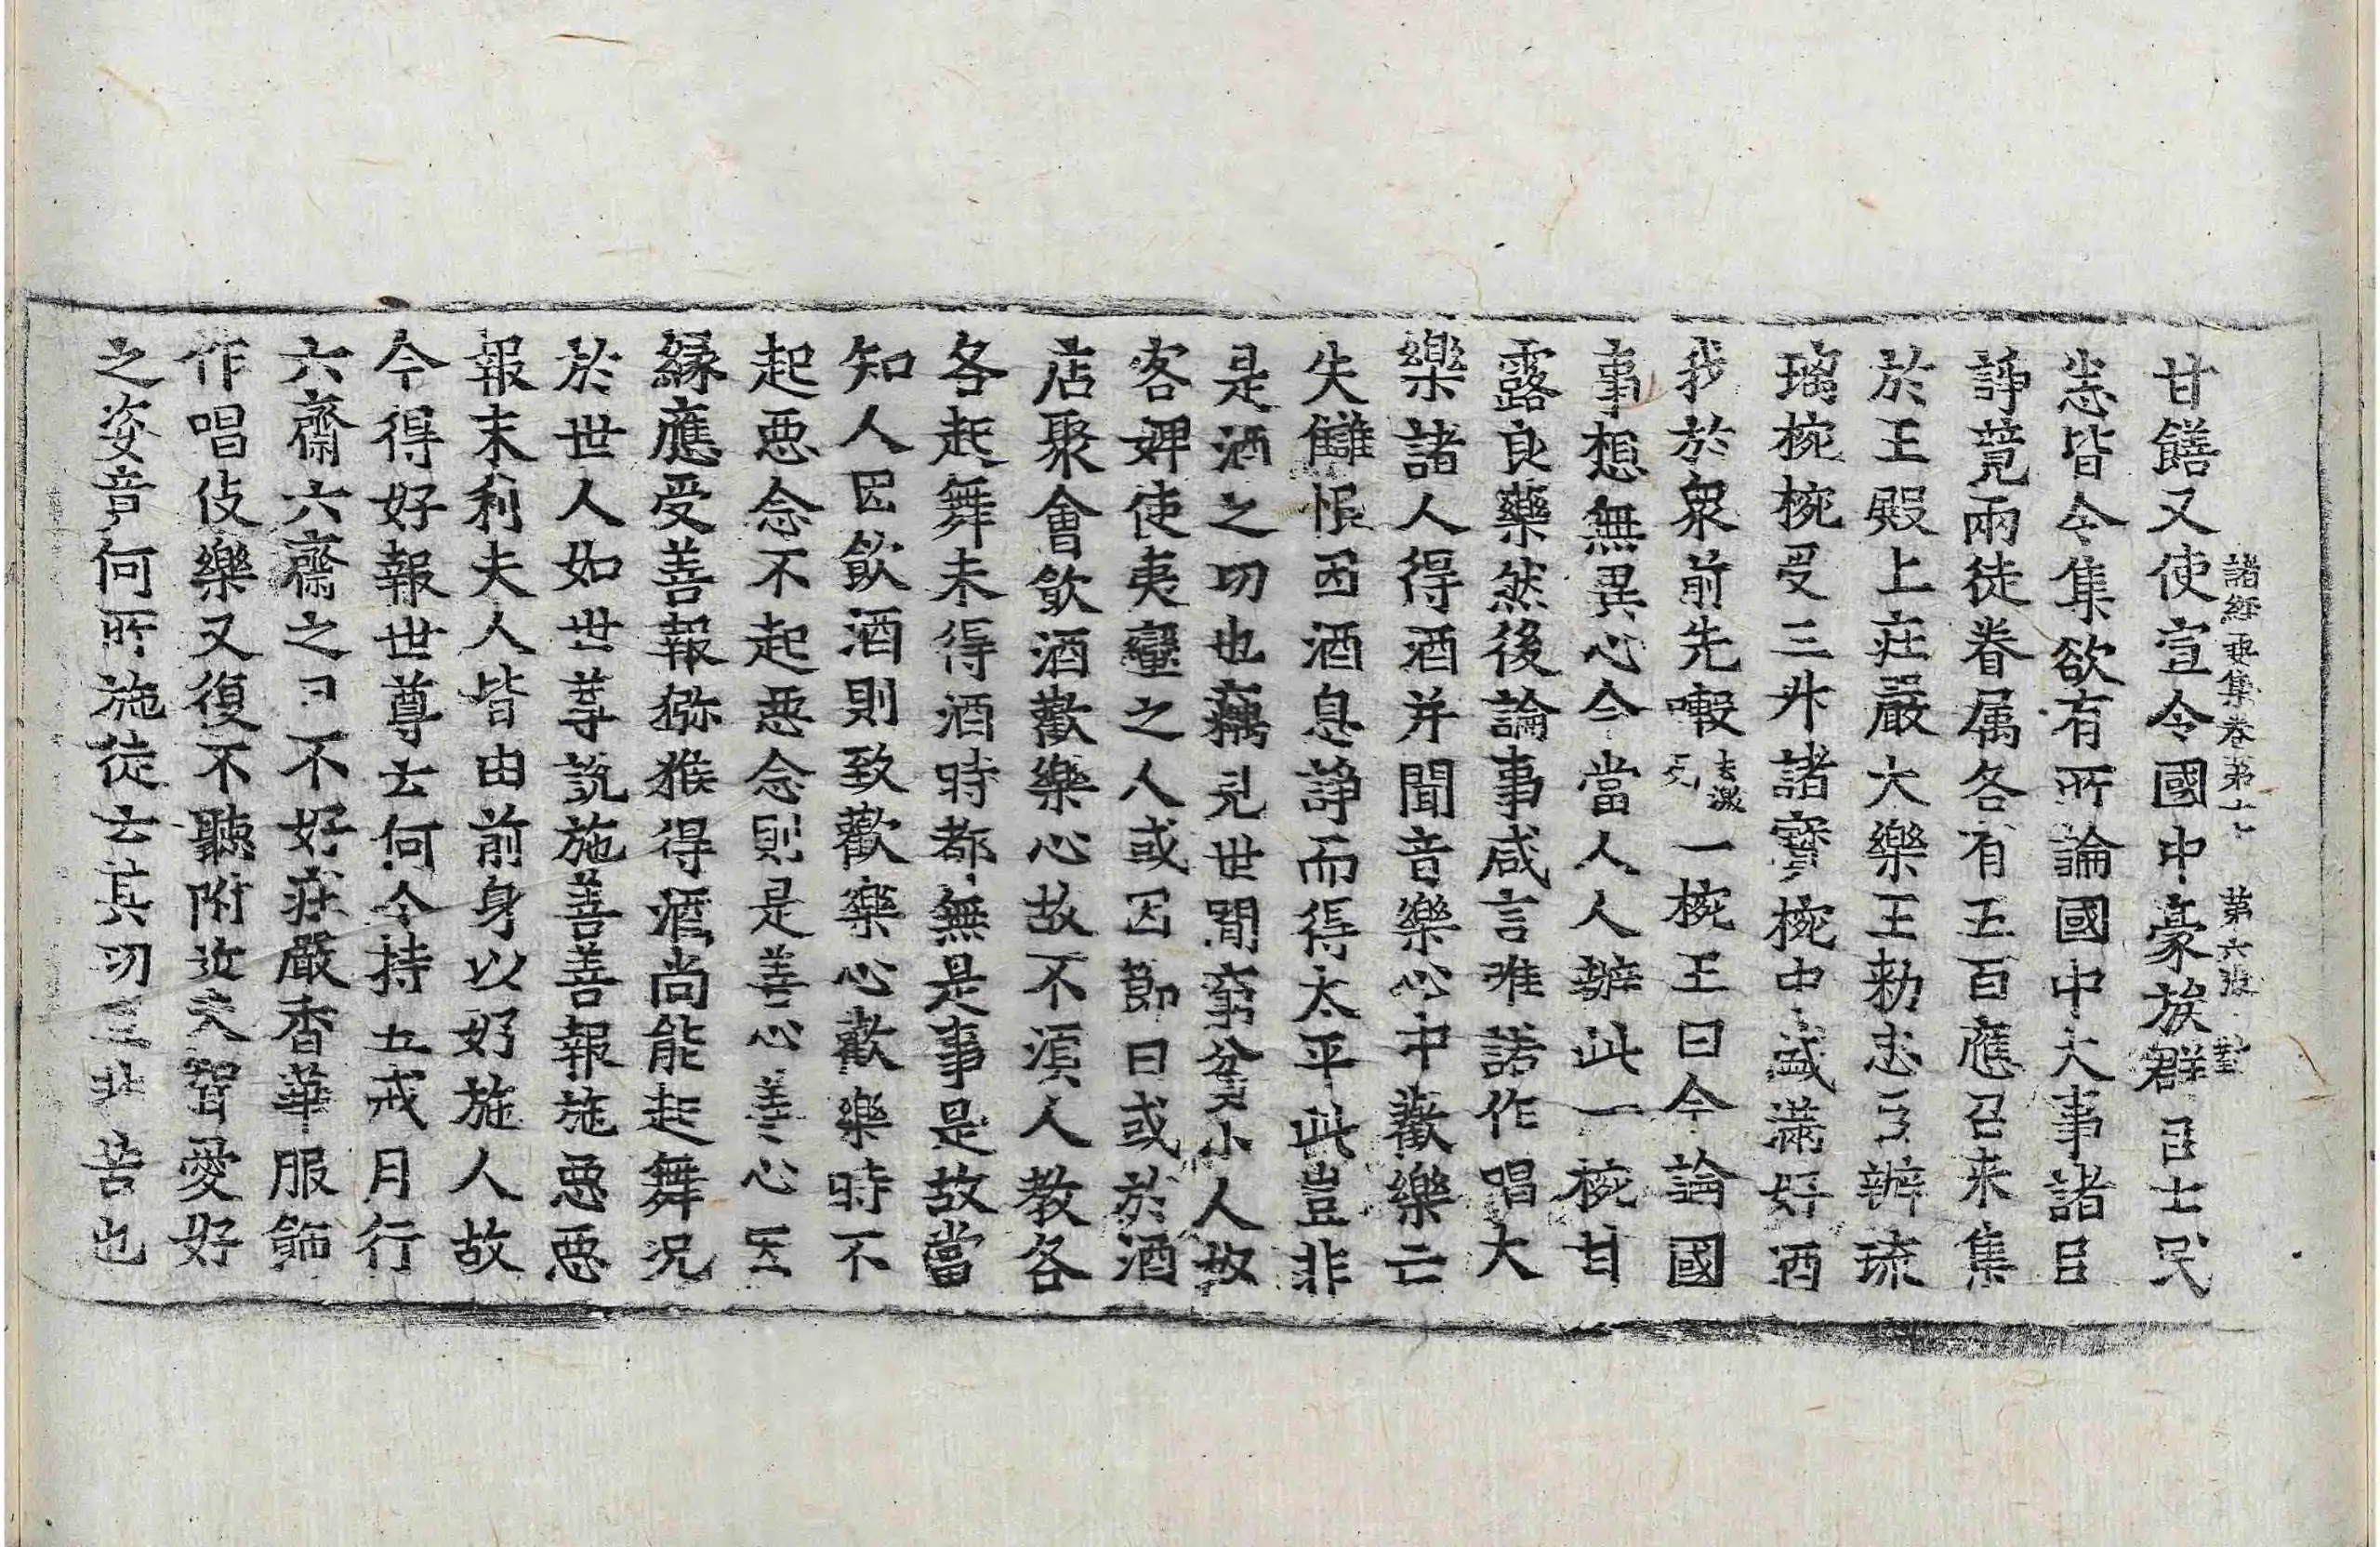 諸經要集卷第十七　第六張
甘饍又使宣令國中豪族群臣士民
悉皆令集欲有所論國中大事諸臣
諍竟兩徒眷属各有五百應召来集
於王殿上莊嚴大樂王勑忠臣辦琉
璃椀椀受三升諸寶椀中盛滿好酒
我於衆前先嘬一椀王曰今論國
事想無異心今當人人辦此一椀甘
露良藥然後論事咸言唯諾作唱大
樂諸人得酒并聞音樂心中歡樂亡
失讎恨因酒息諍而得太平此豈非
是酒之功也竊見世間窮貧小人奴
客婢使夷蠻之人或因節日或於酒
店聚會飲酒歡樂心故不湏人教各
各起舞未得酒時都無是事是故當
知人因飲酒則致歡樂心歡樂時不
起惡念不起惡念則是善心善心因
緣應受善報獼猴得酒尚能起舞况
於世人如世尊說施善善報施惡惡
報末利夫人皆由前身以好施人故
今得好報世尊云何令持五戒月行
六齋六齋之日不好莊嚴香華服飾
作唱伎樂又復不聽附近夫婿愛好
之姿音何所施徒云其功豈非苦也